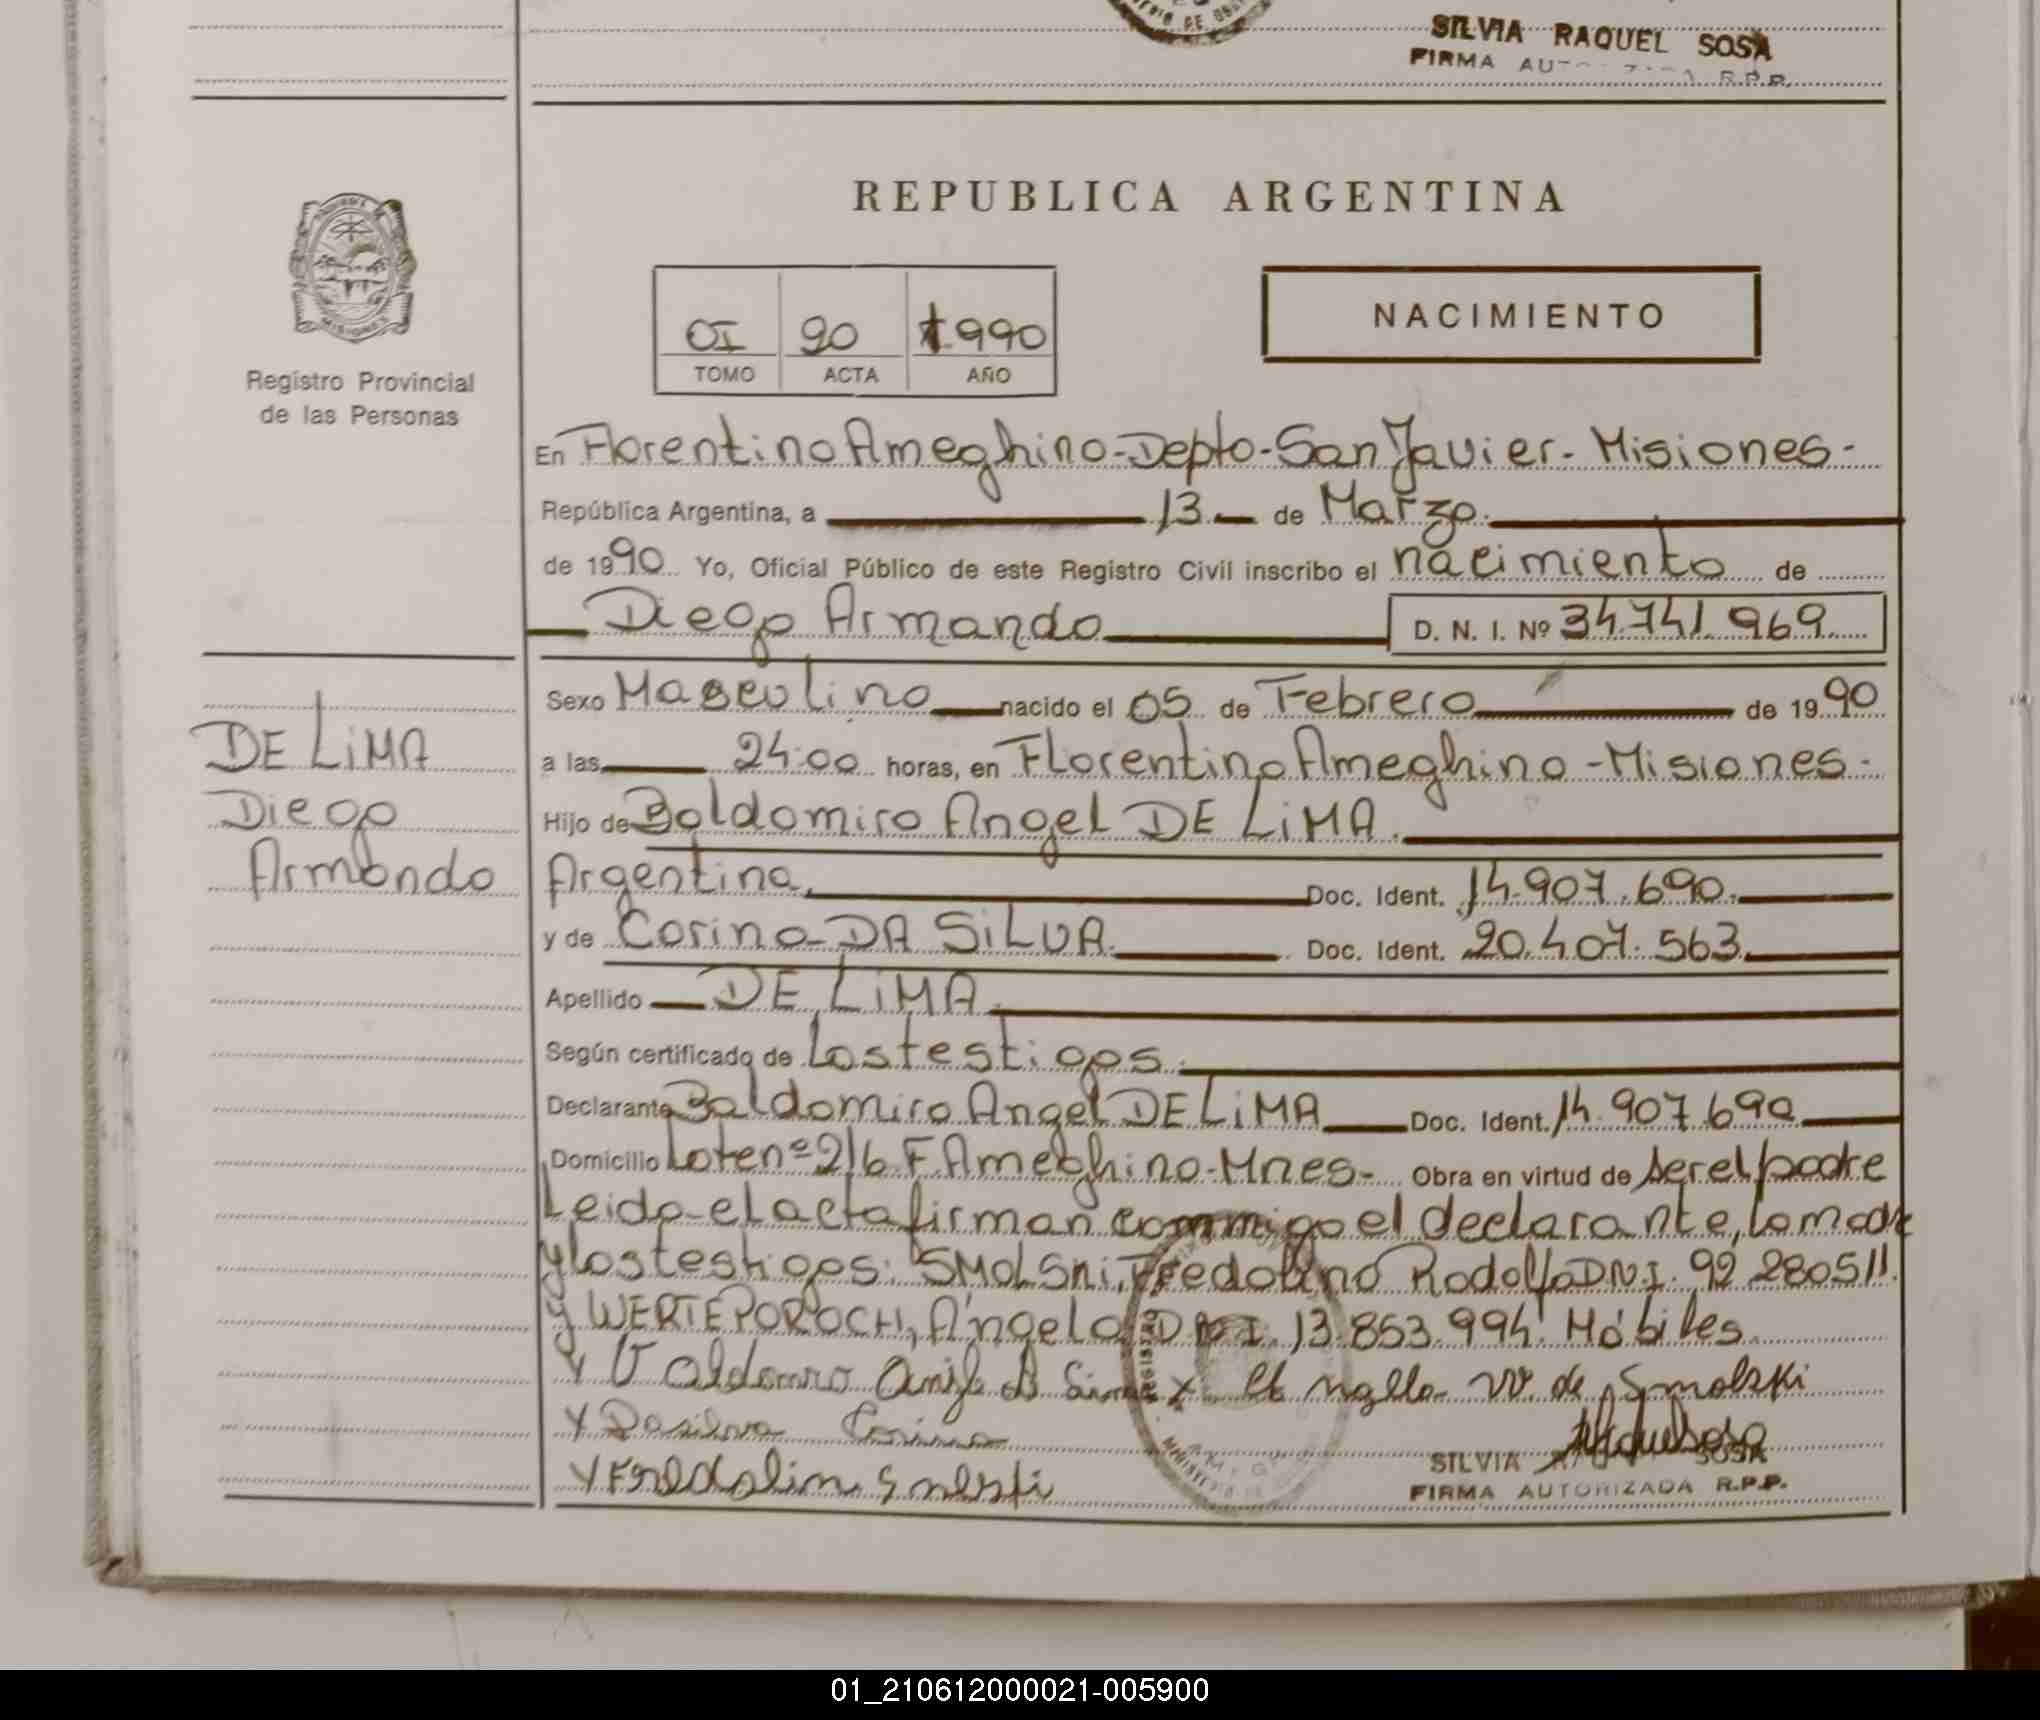 SILVIA RAQUEL SOSA
FIRMA R.P.P.
REPUBLICA ARGENTINA
MISIONES
Registro Provincial
de las Personas
OI 90 1990
TOMO ACTA AÑO
NACIMIENTO
En Florentino Ameghino-Depto-San Javier-Misiones-
República Argentina, a 13 de Marzo
de 1990 Yo, Oficial Público de este Registro Civil inscribo el nacimiento de
Diego Armando D. N. I. Nº 34.741.969
Sexo Masculino nacido el 05 de Febrero de 1990
a las 24:00 horas, en Florentino Ameghino-Misiones-
Hijo de Baldomiro Angel DE LiMA.
Argentina. Doc. Ident. 14.907.690.
y de Corina-DA SiLVA. Doc. Ident. 20.407.563
Apellido DE LiMA.
Según certificado de Los testigos.
Declarante Baldomiro Angel DE LiMA Doc. Ident. 14.907.690
Domicilio Lote nº 216 F. Ameghino-Mnes- Obra en virtud de ser el padre
Leida el acta firman conmigo el declarante, la madre
y los testigos: SMOLSKi, Fredolino Rodolfo D.N.I. 92.280511.
y WERTEPOROCH, Angela D.N.I. 13.853.994 Hábiles
DE LiMA
Diego
Armando
X Dasilva Corina
W. de Smolski
SILVIA SOSA
FIRMA AUTORIZADA R.P.P.
01_210612000021-005900